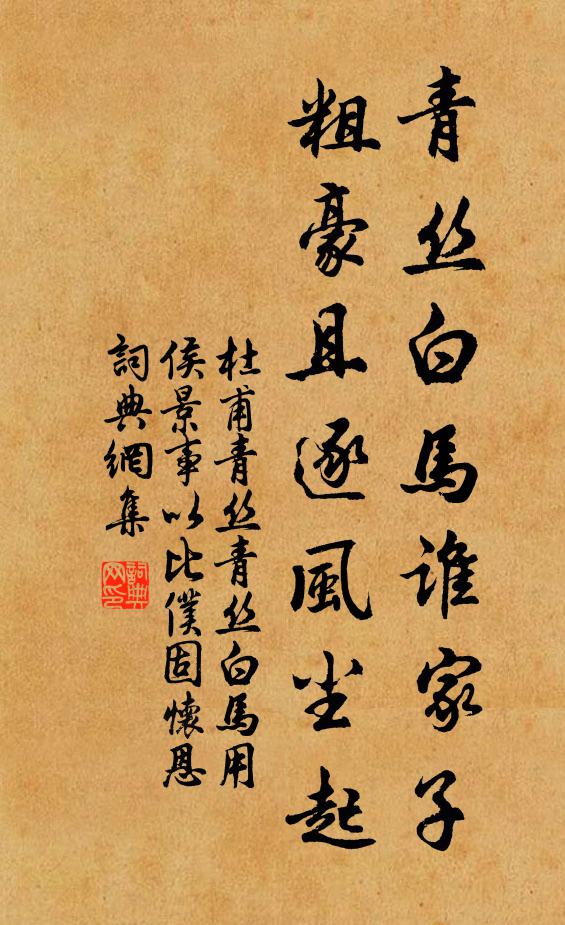 青丝白馬誰家子
粗豪且逐風尘起
杜甫青丝青丝白馬用
侯景事以比僕固懷恩
詞典網集
詞典网印